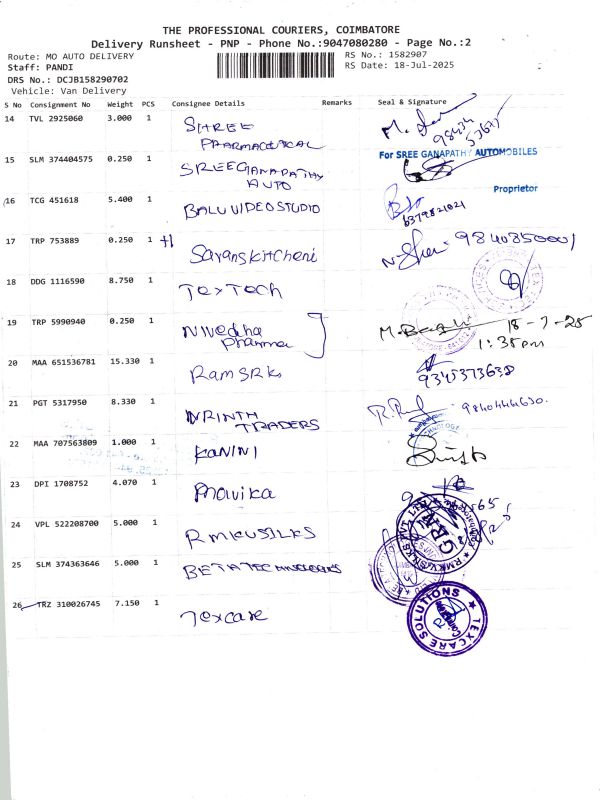 THE PROFESSIONAL COURIERS, COIMBATORE
Delivery Runsheet - PNP - Phone No.:9047080280 - Page No.:2
Route: MO AUTO DELIVERY RS No.: 1582907
Staff: PANDI RS Date: 18-Jul-2025
DRS No.: DCJB158290702
Vehicle: Van Delivery
S No Consignment No Weight PCS Consignee Details Remarks Seal & Signature
14 TVL 2925060 3.000 1 SHREE PHARMACEUTICAL
For SREE GANAPATHY AUTOMOBILES
15 SLM 374404575 0.250 1 SREEGANAPATHY AUTO
Proprietor
16 TCG 451618 5.400 1 BALU VIDEO STUDIO 6379821021
17 TRP 753889 0.250 1 +1 Saranskitcheni 9840850001
18 DDG 1116590 8.750 1 TexTech
19 TRP 5990940 0.250 1 Nivedha Pharma 18-7-25
1:35pm
20 MAA 651536781 15.330 1 Ram SRKs
21 PGT 5317950 8.330 1 TRADERS
22 MAA 707563809 1.000 1 KANINI
23 DPI 1708752 4.070 1
24 VPL 522208700 5.000 1 RMKVSILKS
RMKV SILKS PVT LTD
GRN
25 SLM 374363646 5.000 1 BETA TECHNOLOGIES
26 TRZ 310026745 7.150 1 Texcare
TEXCARE SOLUTIONS